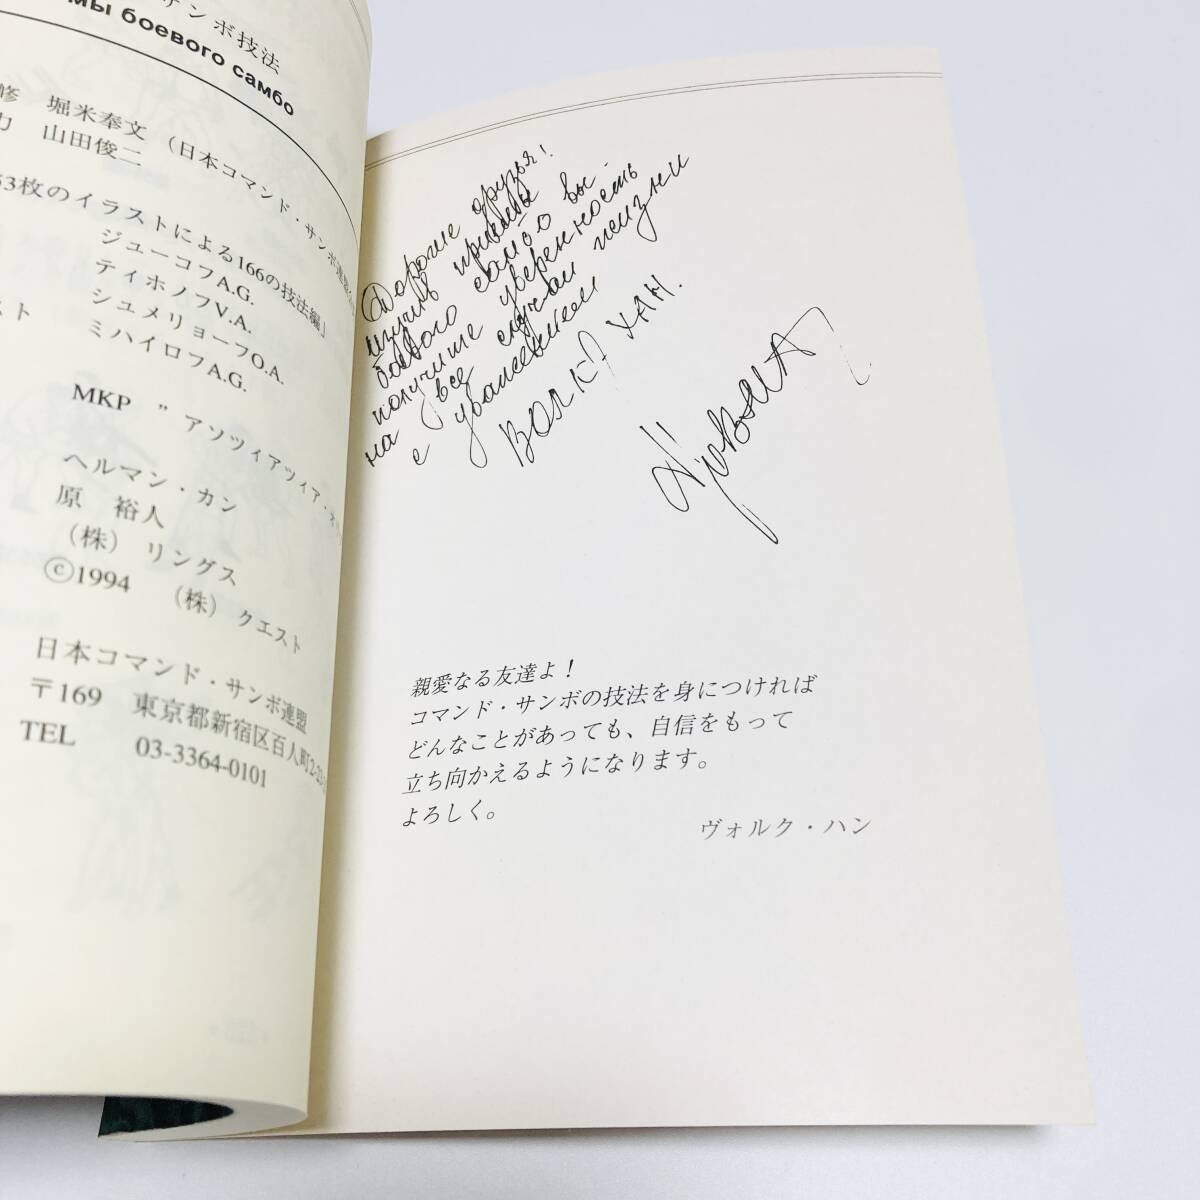 サンボ技法
мы боевого самбо
修 堀米奉文（日本コマンド・サンボ連盟
力 山田俊二
53枚のイラストによる166の技法編」
ジューコフA.G.
ティホノフV.A.
シュメリョーフO.A.
スト ミハイロフA.G.
MKP ” アソツィアツィア・
ヘルマン・カン
原 裕人
（株）リングス
©1994 （株）クエスト
日本コマンド・サンボ連盟
〒169 東京都新宿区百人町2-
TEL 03-3364-0101
Дорогие друзья!
изучив приемы
боевого самбо вы
получите уверенность
на все случаи жизни
с уважением
ВОЛК ХАН.
親愛なる友達よ！
コマンド・サンボの技法を身につければ
どんなことがあっても、自信をもって
立ち向かえるようになります。
よろしく。
ヴォルク・ハン